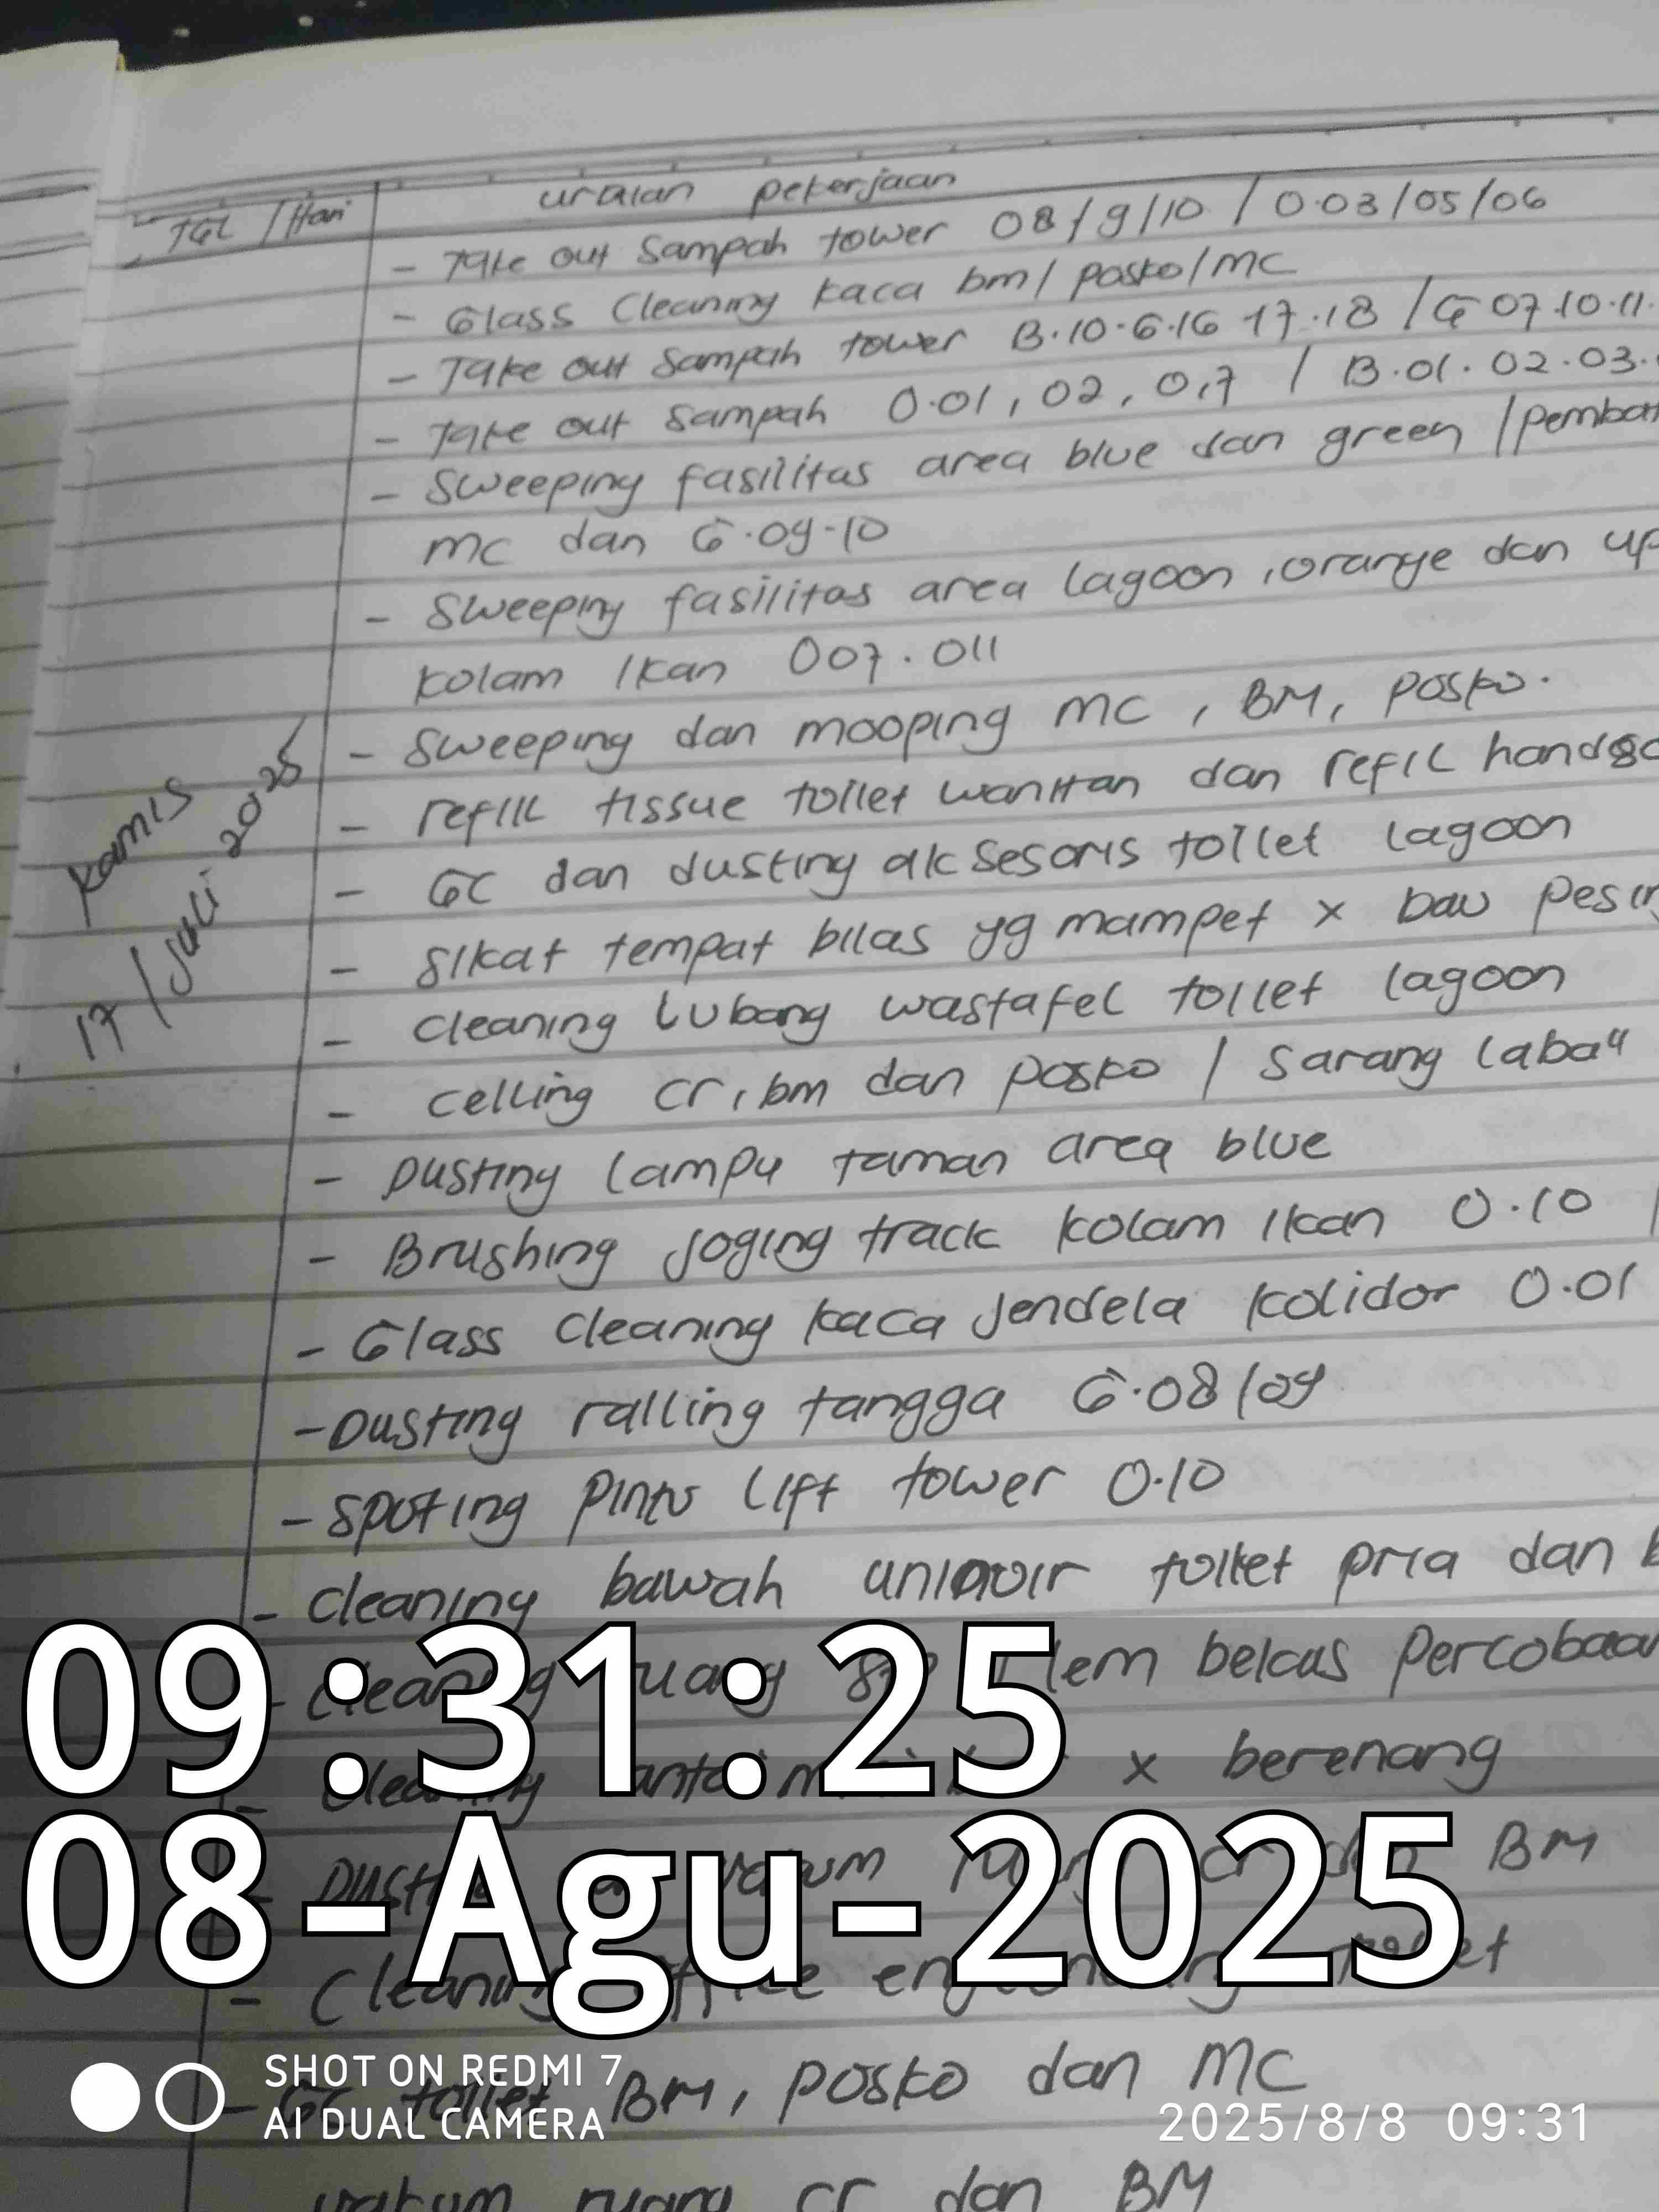 TGL / Hari
uraian pekerjaan
- Take out Sampah tower 08/9/10 / 0.03/05/06
- Glass Cleaning kaca bm/ posko/MC
- Take out Sampah tower B.10.6.16 17.18 /G 07.10.11.
- Take out Sampah 0.01, 02, 0,7 / B.01.02.03.
- Sweeping fasilitas area blue dan green /
MC dan G.09-10
- Sweeping fasilitas area lagoon, orange dan
kolam Ikan 007.011
- Sweeping dan mooping MC, BM, Posko.
- refill tissue toilet wanitan dan refil
- GC dan dusting aksesoris toilet lagoon
- Sikat tempat bilas yg mampet x bau
- Cleaning lubang wastafel toilet lagoon
- celling cr, bm dan posko / Sarang laba"
- Dusting lampu taman area blue
- Brushing joging track kolam Ikan 0.10
- Glass Cleaning kaca Jendela kolidor 0.01
- Dusting ralling tangga G.08/09
- Spoting Pintu Lift tower 0.10
- Cleaning bawah toilet pria dan
- Cleaning ruang lem bekas Percobaan
- Cleaning x berenang
- BM
- Cleaning office
- GC toilet BM, posko dan MC
vakum ruang cr dan BM
kamis
17/Juli 2025
09:31:25
08-Agu-2025
SHOT ON REDMI 7
AI DUAL CAMERA
2025/8/8 09:31